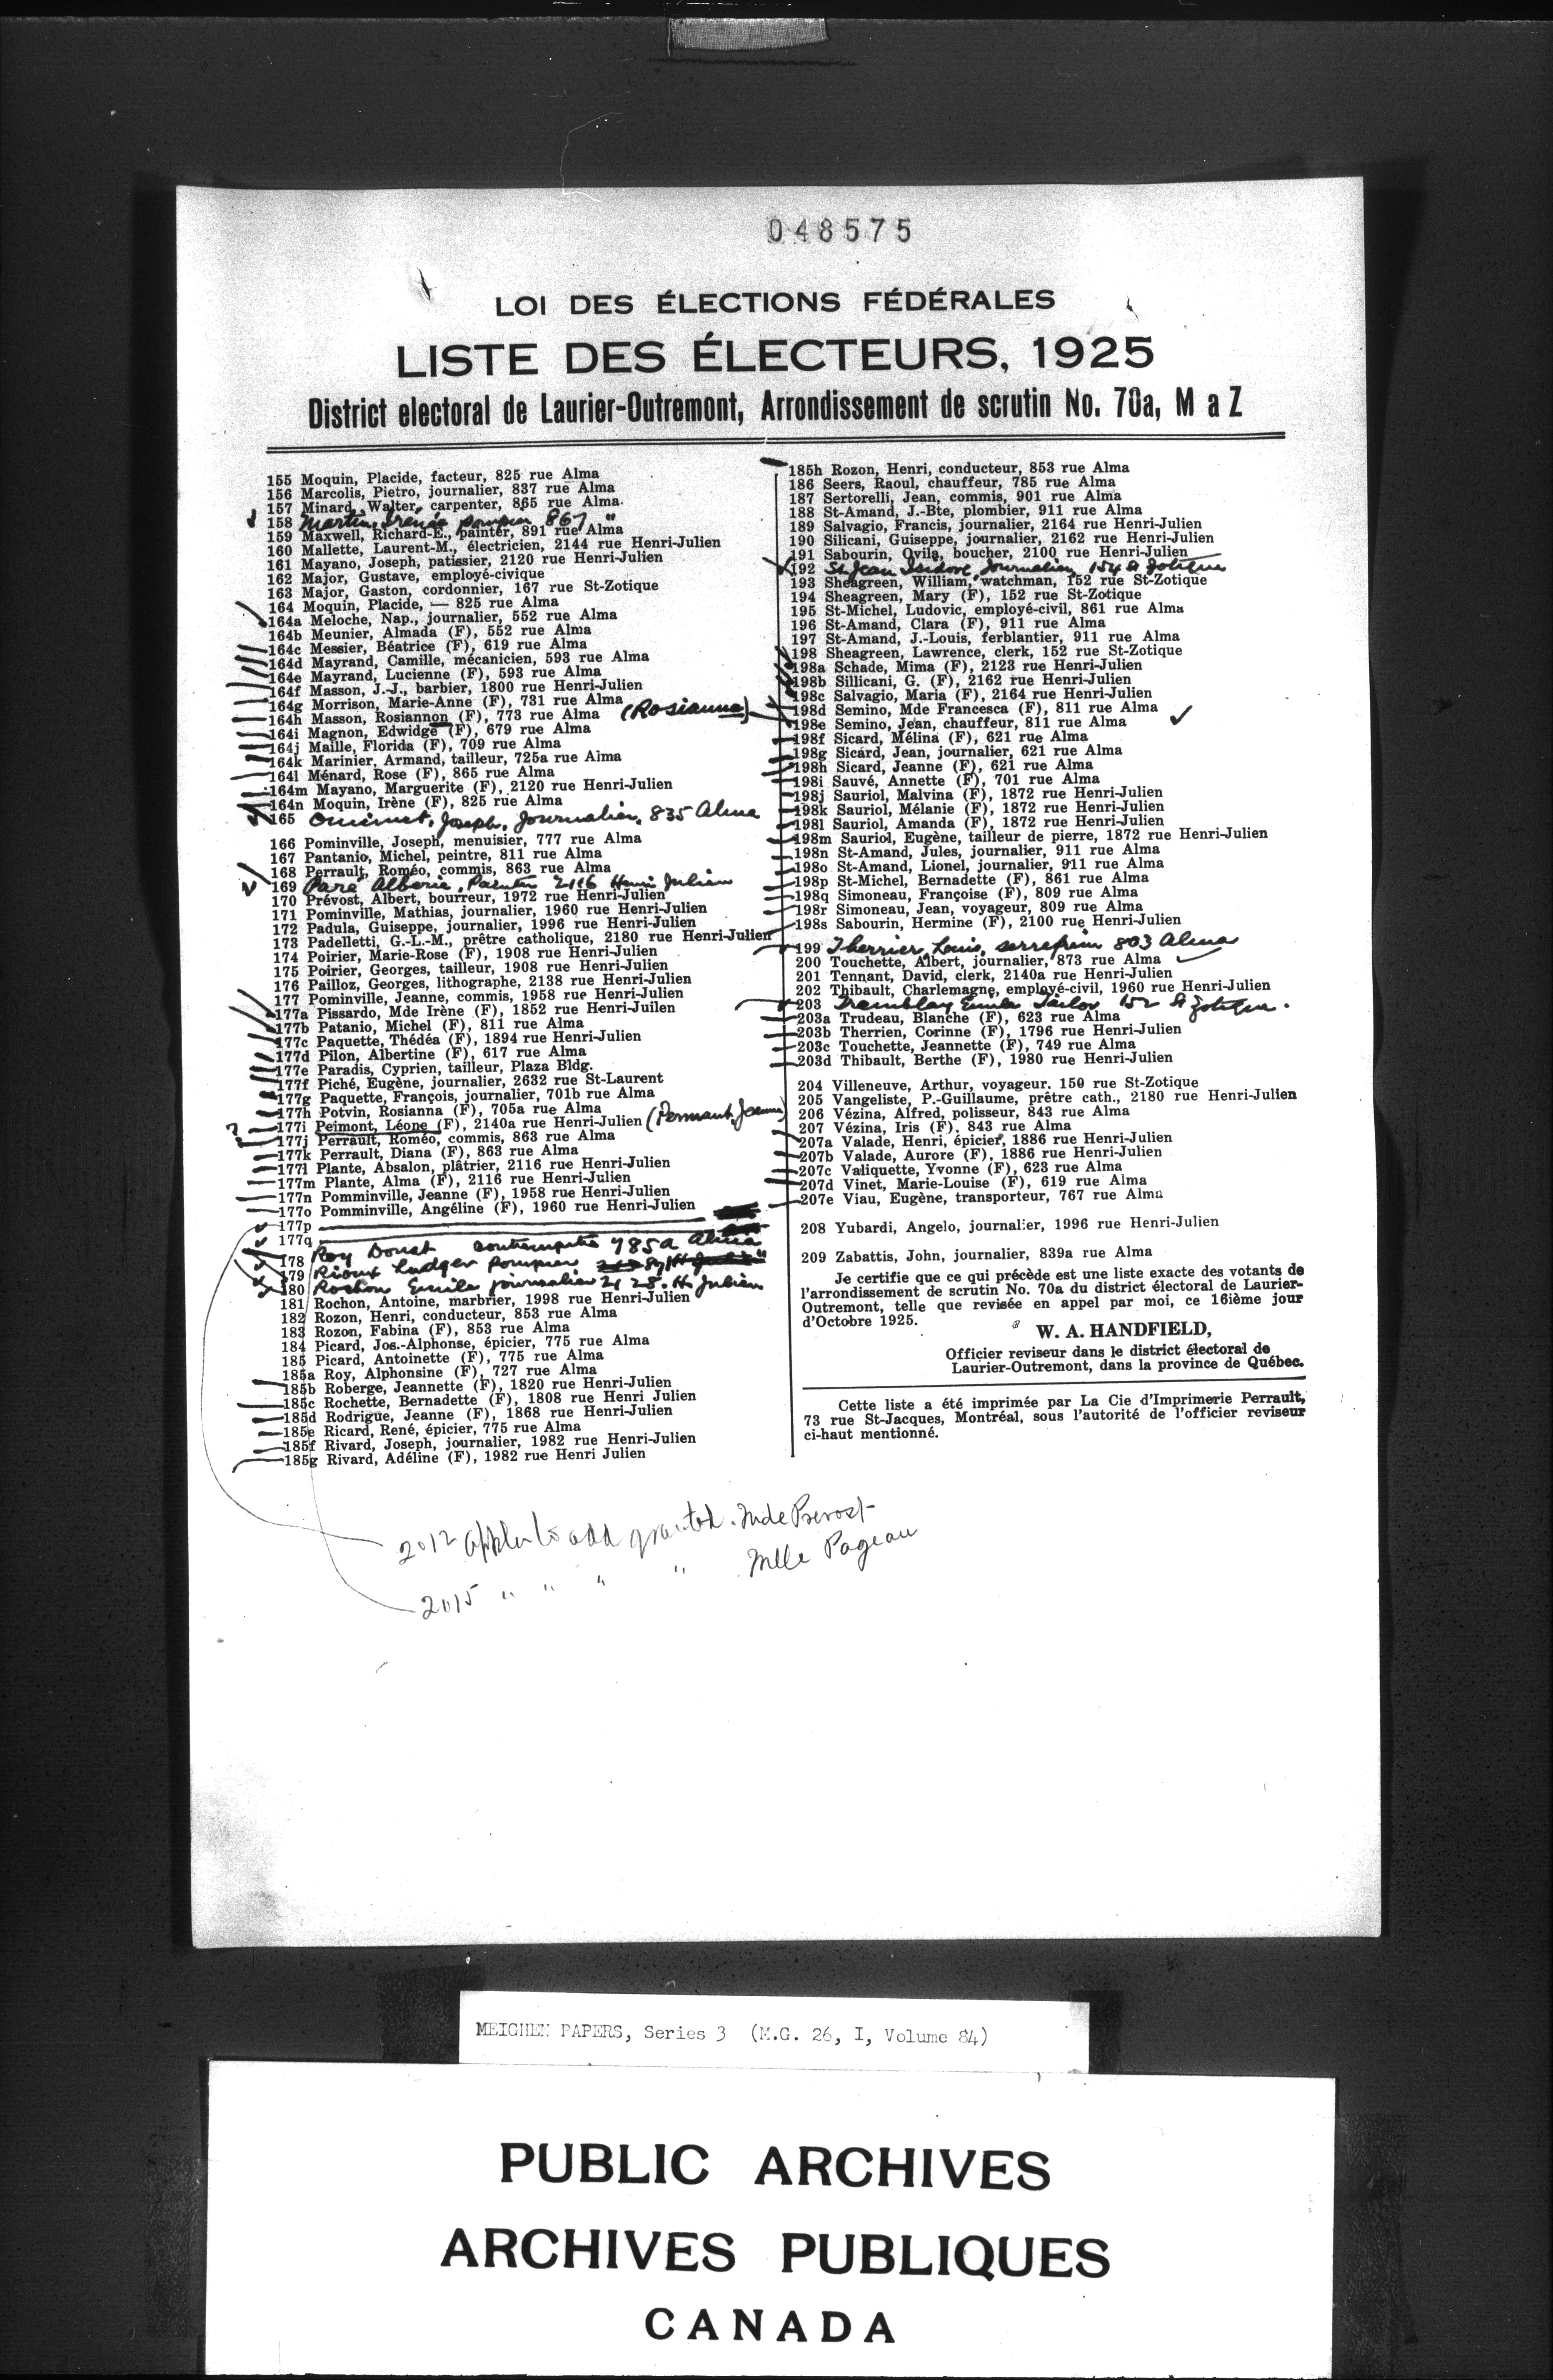 048575
LOI DES ÉLECTIONS FÉDÉRALES
LISTE DES ÉLECTEURS, 1925
District electoral de Laurier-Outremont, Arrondissement de scrutin No. 70a, M a Z
155 Moquin, Placide, facteur, 825 rue Alma
156 Marcolis, Pietro, journalier, 837 rue Alma
157 Minard, Walter, carpenter, 865 rue Alma.
158 Martin, Irenée pompier 867 "
159 Maxwell, Richard-E., painter, 891 rue Alma
160 Mallette, Laurent-M., électricien, 2144 rue Henri-Julien
161 Mayano, Joseph, patissier, 2120 rue Henri-Julien
162 Major, Gustave, employé-civique
163 Major, Gaston, cordonnier, 167 rue St-Zotique
164 Moquin, Placide, — 825 rue Alma
164a Meloche, Nap., journalier, 552 rue Alma
164b Meunier, Almada (F), 552 rue Alma
164c Messier, Béatrice (F), 619 rue Alma
164d Mayrand, Camille, mécanicien, 593 rue Alma
164e Mayrand, Lucienne (F), 593 rue Alma
164f Masson, J.-J., barbier, 1800 rue Henri-Julien
164g Morrison, Marie-Anne (F), 731 rue Alma
164h Masson, Rosiannon (F), 773 rue Alma (Rosianna)
164i Magnon, Edwidge (F), 679 rue Alma
164j Maille, Florida (F), 709 rue Alma
164k Marinier, Armand, tailleur, 725a rue Alma
164l Ménard, Rose (F), 865 rue Alma
164m Mayano, Marguerite (F), 2120 rue Henri-Julien
164n Moquin, Irène (F), 825 rue Alma
165 Ouimet, Joseph, Journalier, 835 Alma
166 Pominville, Joseph, menuisier, 777 rue Alma
167 Pantanio, Michel, peintre, 811 rue Alma
168 Perrault, Roméo, commis, 863 rue Alma
169 Paré Alberic, Painter 2116 Henri Julien
170 Prévost, Albert, bourreur, 1972 rue Henri-Julien
171 Pominville, Mathias, journalier, 1960 rue Henri-Julien
172 Padula, Guiseppe, journalier, 1996 rue Henri-Julien
173 Padelletti, G.-L.-M., prêtre catholique, 2180 rue Henri-Julien
174 Poirier, Marie-Rose (F), 1908 rue Henri-Julien
175 Poirier, Georges, tailleur, 1908 rue Henri-Julien
176 Pailloz, Georges, lithographe, 2138 rue Henri-Julien
177 Pominville, Jeanne, commis, 1958 rue Henri-Julien
177a Pissardo, Mde Irène (F), 1852 rue Henri-Juilen
177b Patanio, Michel (F), 811 rue Alma
177c Paquette, Thédéa (F), 1894 rue Henri-Julien
177d Pilon, Albertine (F), 617 rue Alma
177e Paradis, Cyprien, tailleur, Plaza Bldg.
177f Piché, Eugène, journalier, 2632 rue St-Laurent
177g Paquette, François, journalier, 701b rue Alma
177h Potvin, Rosianna (F), 705a rue Alma
? 177i Peimont, Léone (F), 2140a rue Henri-Julien
177j Perrault, Roméo, commis, 863 rue Alma
177k Perrault, Diana (F), 863 rue Alma
177l Plante, Absalon, plâtrier, 2116 rue Henri-Julien
177m Plante, Alma (F), 2116 rue Henri-Julien
177n Pomminville, Jeanne (F), 1958 rue Henri-Julien
177o Pomminville, Angéline (F), 1960 rue Henri-Julien
177p
177q
178 Roy Donat 985a Alma
179 Rioux Ludger pompier
180 Rochon Emile journalier 2128 H. Julien
181 Rochon, Antoine, marbrier, 1998 rue Henri-Julien
182 Rozon, Henri, conducteur, 853 rue Alma
183 Rozon, Fabina (F), 853 rue Alma
184 Picard, Jos.-Alphonse, épicier, 775 rue Alma
185 Picard, Antoinette (F), 775 rue Alma
185a Roy, Alphonsine (F), 727 rue Alma
185b Roberge, Jeannette (F), 1820 rue Henri-Julien
185c Rochette, Bernadette (F), 1808 rue Henri Julien
185d Rodrigue, Jeanne (F), 1868 rue Henri-Julien
185e Ricard, René, épicier, 775 rue Alma
185f Rivard, Joseph, journalier, 1982 rue Henri-Julien
185g Rivard, Adéline (F), 1982 rue Henri Julien
185h Rozon, Henri, conducteur, 853 rue Alma
186 Seers, Raoul, chauffeur, 785 rue Alma
187 Sertorelli, Jean, commis, 901 rue Alma
188 St-Amand, J.-Bte, plombier, 911 rue Alma
189 Salvagio, Francis, journalier, 2164 rue Henri-Julien
190 Silicani, Guiseppe, journalier, 2162 rue Henri-Julien
191 Sabourin, Ovila, boucher, 2100 rue Henri-Julien
192 St Jean Isidore Journalier, 154 St Zotique
193 Sheagreen, William, watchman, 152 rue St-Zotique
194 Sheagreen, Mary (F), 152 rue St-Zotique
195 St-Michel, Ludovic, employé-civil, 861 rue Alma
196 St-Amand, Clara (F), 911 rue Alma
197 St-Amand, J.-Louis, ferblantier, 911 rue Alma
198 Sheagreen, Lawrence, clerk, 152 rue St-Zotique
198a Schade, Mima (F), 2123 rue Henri-Julien
198b Sillicani, G. (F), 2162 rue Henri-Julien
198c Salvagio, Maria (F), 2164 rue Henri-Julien
198d Semino, Mde Francesca (F), 811 rue Alma
198e Semino, Jean, chauffeur, 811 rue Alma ✓
198f Sicard, Mélina (F), 621 rue Alma
198g Sicard, Jean, journalier, 621 rue Alma
198h Sicard, Jeanne (F), 621 rue Alma
198i Sauvé, Annette (F), 701 rue Alma
198j Sauriol, Malvina (F), 1872 rue Henri-Julien
198k Sauriol, Mélanie (F), 1872 rue Henri-Julien
198l Sauriol, Amanda (F), 1872 rue Henri-Julien
198m Sauriol, Eugène, tailleur de pierre, 1872 rue Henri-Julien
198n St-Amand, Jules, journalier, 911 rue Alma
198o St-Amand, Lionel, journalier, 911 rue Alma
198p St-Michel, Bernadette (F), 861 rue Alma
198q Simoneau, Françoise (F), 809 rue Alma
198r Simoneau, Jean, voyageur, 809 rue Alma
198s Sabourin, Hermine (F), 2100 rue Henri-Julien
199 Therrier, Louis, serrefrein 803 Alma
200 Touchette, Albert, journalier, 873 rue Alma
201 Tennant, David, clerk, 2140a rue Henri-Julien
202 Thibault, Charlemagne, employé-civil, 1960 rue Henri-Julien
203 Tremblay Emile Tailor 152 St Zotique.
203a Trudeau, Blanche (F), 623 rue Alma
203b Therrien, Corinne (F), 1796 rue Henri-Julien
203c Touchette, Jeannette (F), 749 rue Alma
203d Thibault, Berthe (F), 1980 rue Henri-Julien
204 Villeneuve, Arthur, voyageur. 150 rue St-Zotique
205 Vangeliste, P.-Guillaume, prêtre cath., 2180 rue Henri-Julien
206 Vézina, Alfred, polisseur, 843 rue Alma
207 Vézina, Iris (F), 843 rue Alma
207a Valade, Henri, épicier, 1886 rue Henri-Julien
207b Valade, Aurore (F), 1886 rue Henri-Julien
207c Valiquette, Yvonne (F), 623 rue Alma
207d Vinet, Marie-Louise (F), 619 rue Alma
207e Viau, Eugène, transporteur, 767 rue Alma
208 Yubardi, Angelo, journalier, 1996 rue Henri-Julien
209 Zabattis, John, journalier, 839a rue Alma
Je certifie que ce qui précède est une liste exacte des votants de
l'arrondissement de scrutin No. 70a du district électoral de Laurier-
Outremont, telle que revisée en appel par moi, ce 16ième jour
d'Octobre 1925.
W. A. HANDFIELD,
Officier reviseur dans le district électoral de
Laurier-Outremont, dans la province de Québec.
Cette liste a été imprimée par La Cie d'Imprimerie Perrault,
73 rue St-Jacques, Montréal, sous l'autorité de l'officier reviseur
ci-haut mentionné.
2012 appln to add granted. Mde Prevost
2015 " " " " Mlle Pageau
MEIGHEN PAPERS, Series 3 (M.G. 26, I, Volume 84)
PUBLIC ARCHIVES
ARCHIVES PUBLIQUES
CANADA